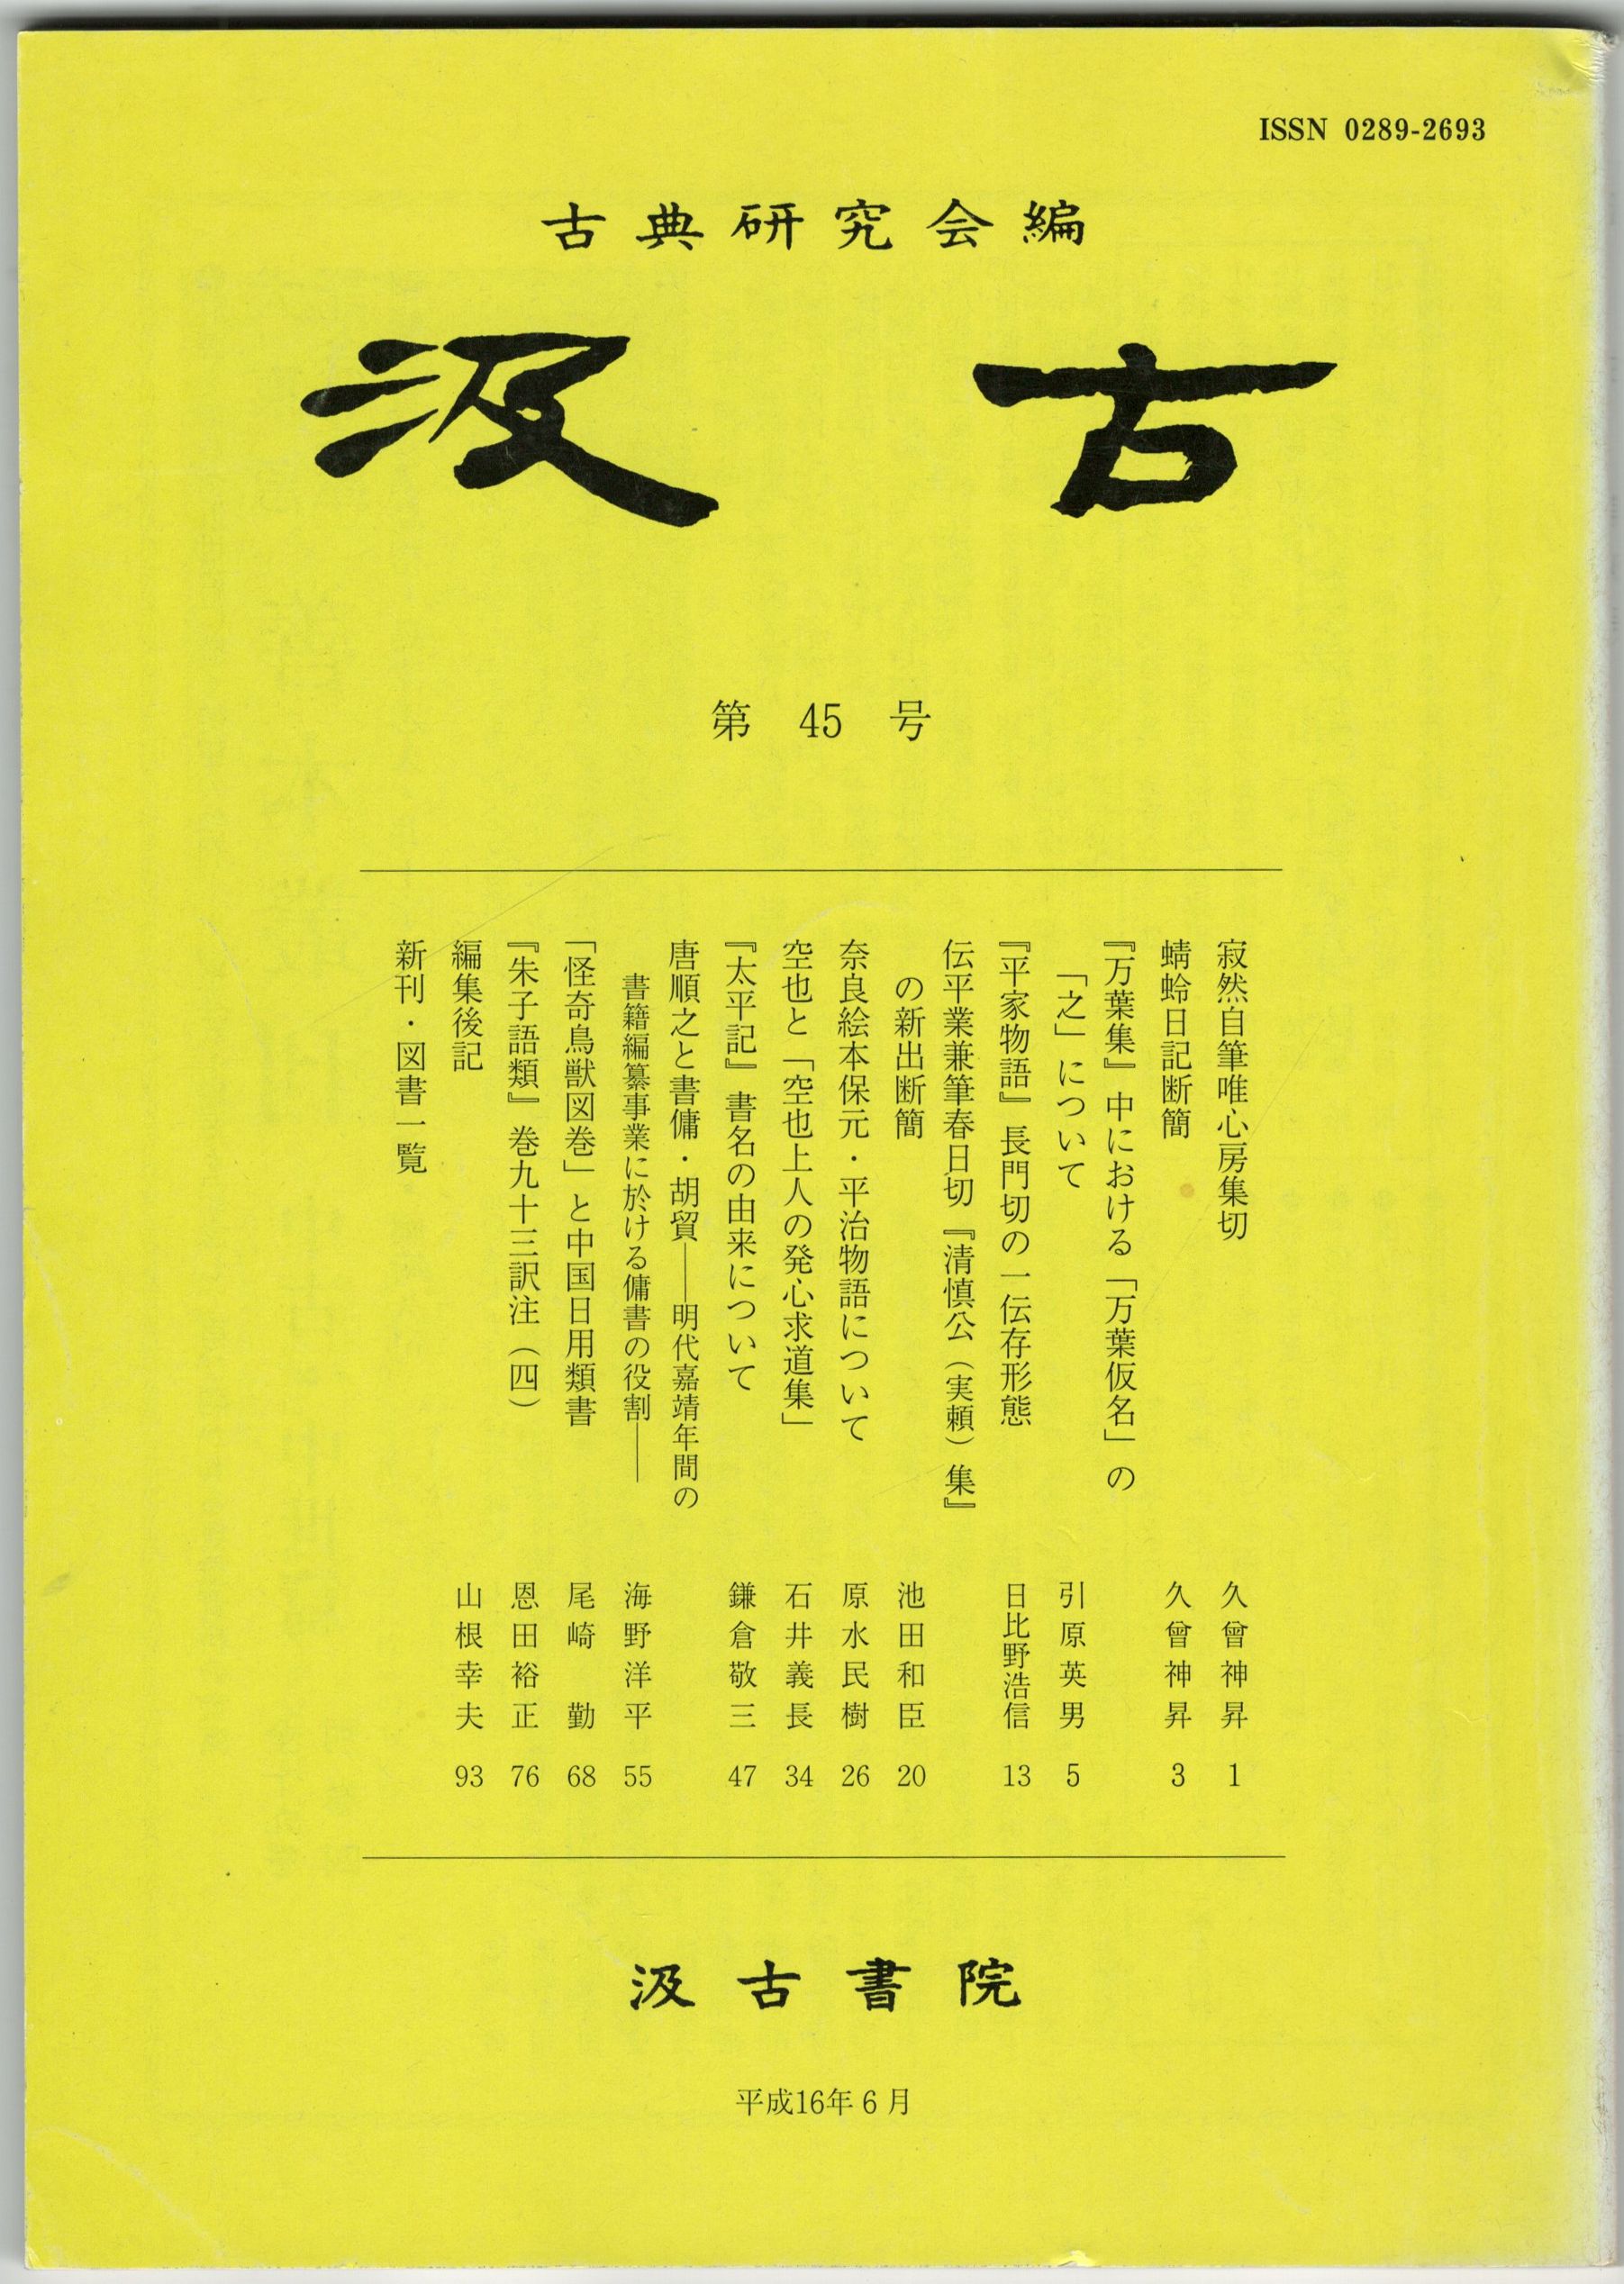 ISSN 0289-2693
古典研究会編
汲古
第45号
寂然自筆唯心房集切 久曾神昇 1
蜻蛉日記断簡 久曾神昇 3
『万葉集』中における「万葉仮名」の
「之」について 引原英男 5
『平家物語』長門切の一伝存形態 日比野浩信 13
伝平業兼筆春日切『清慎公（実頼）集』
の新出断簡 池田和臣 20
奈良絵本保元・平治物語について 原水民樹 26
空也と「空也上人の発心求道集」 石井義長 34
『太平記』書名の由来について 鎌倉敬三 47
唐順之と書傭・胡貿――明代嘉靖年間の
書籍編纂事業に於ける傭書の役割―― 海野洋平 55
「怪奇鳥獣図巻」と中国日用類書 尾崎勤 68
『朱子語類』巻九十三訳注（四） 恩田裕正 76
編集後記 山根幸夫 93
新刊・図書一覧
汲古書院
平成16年6月